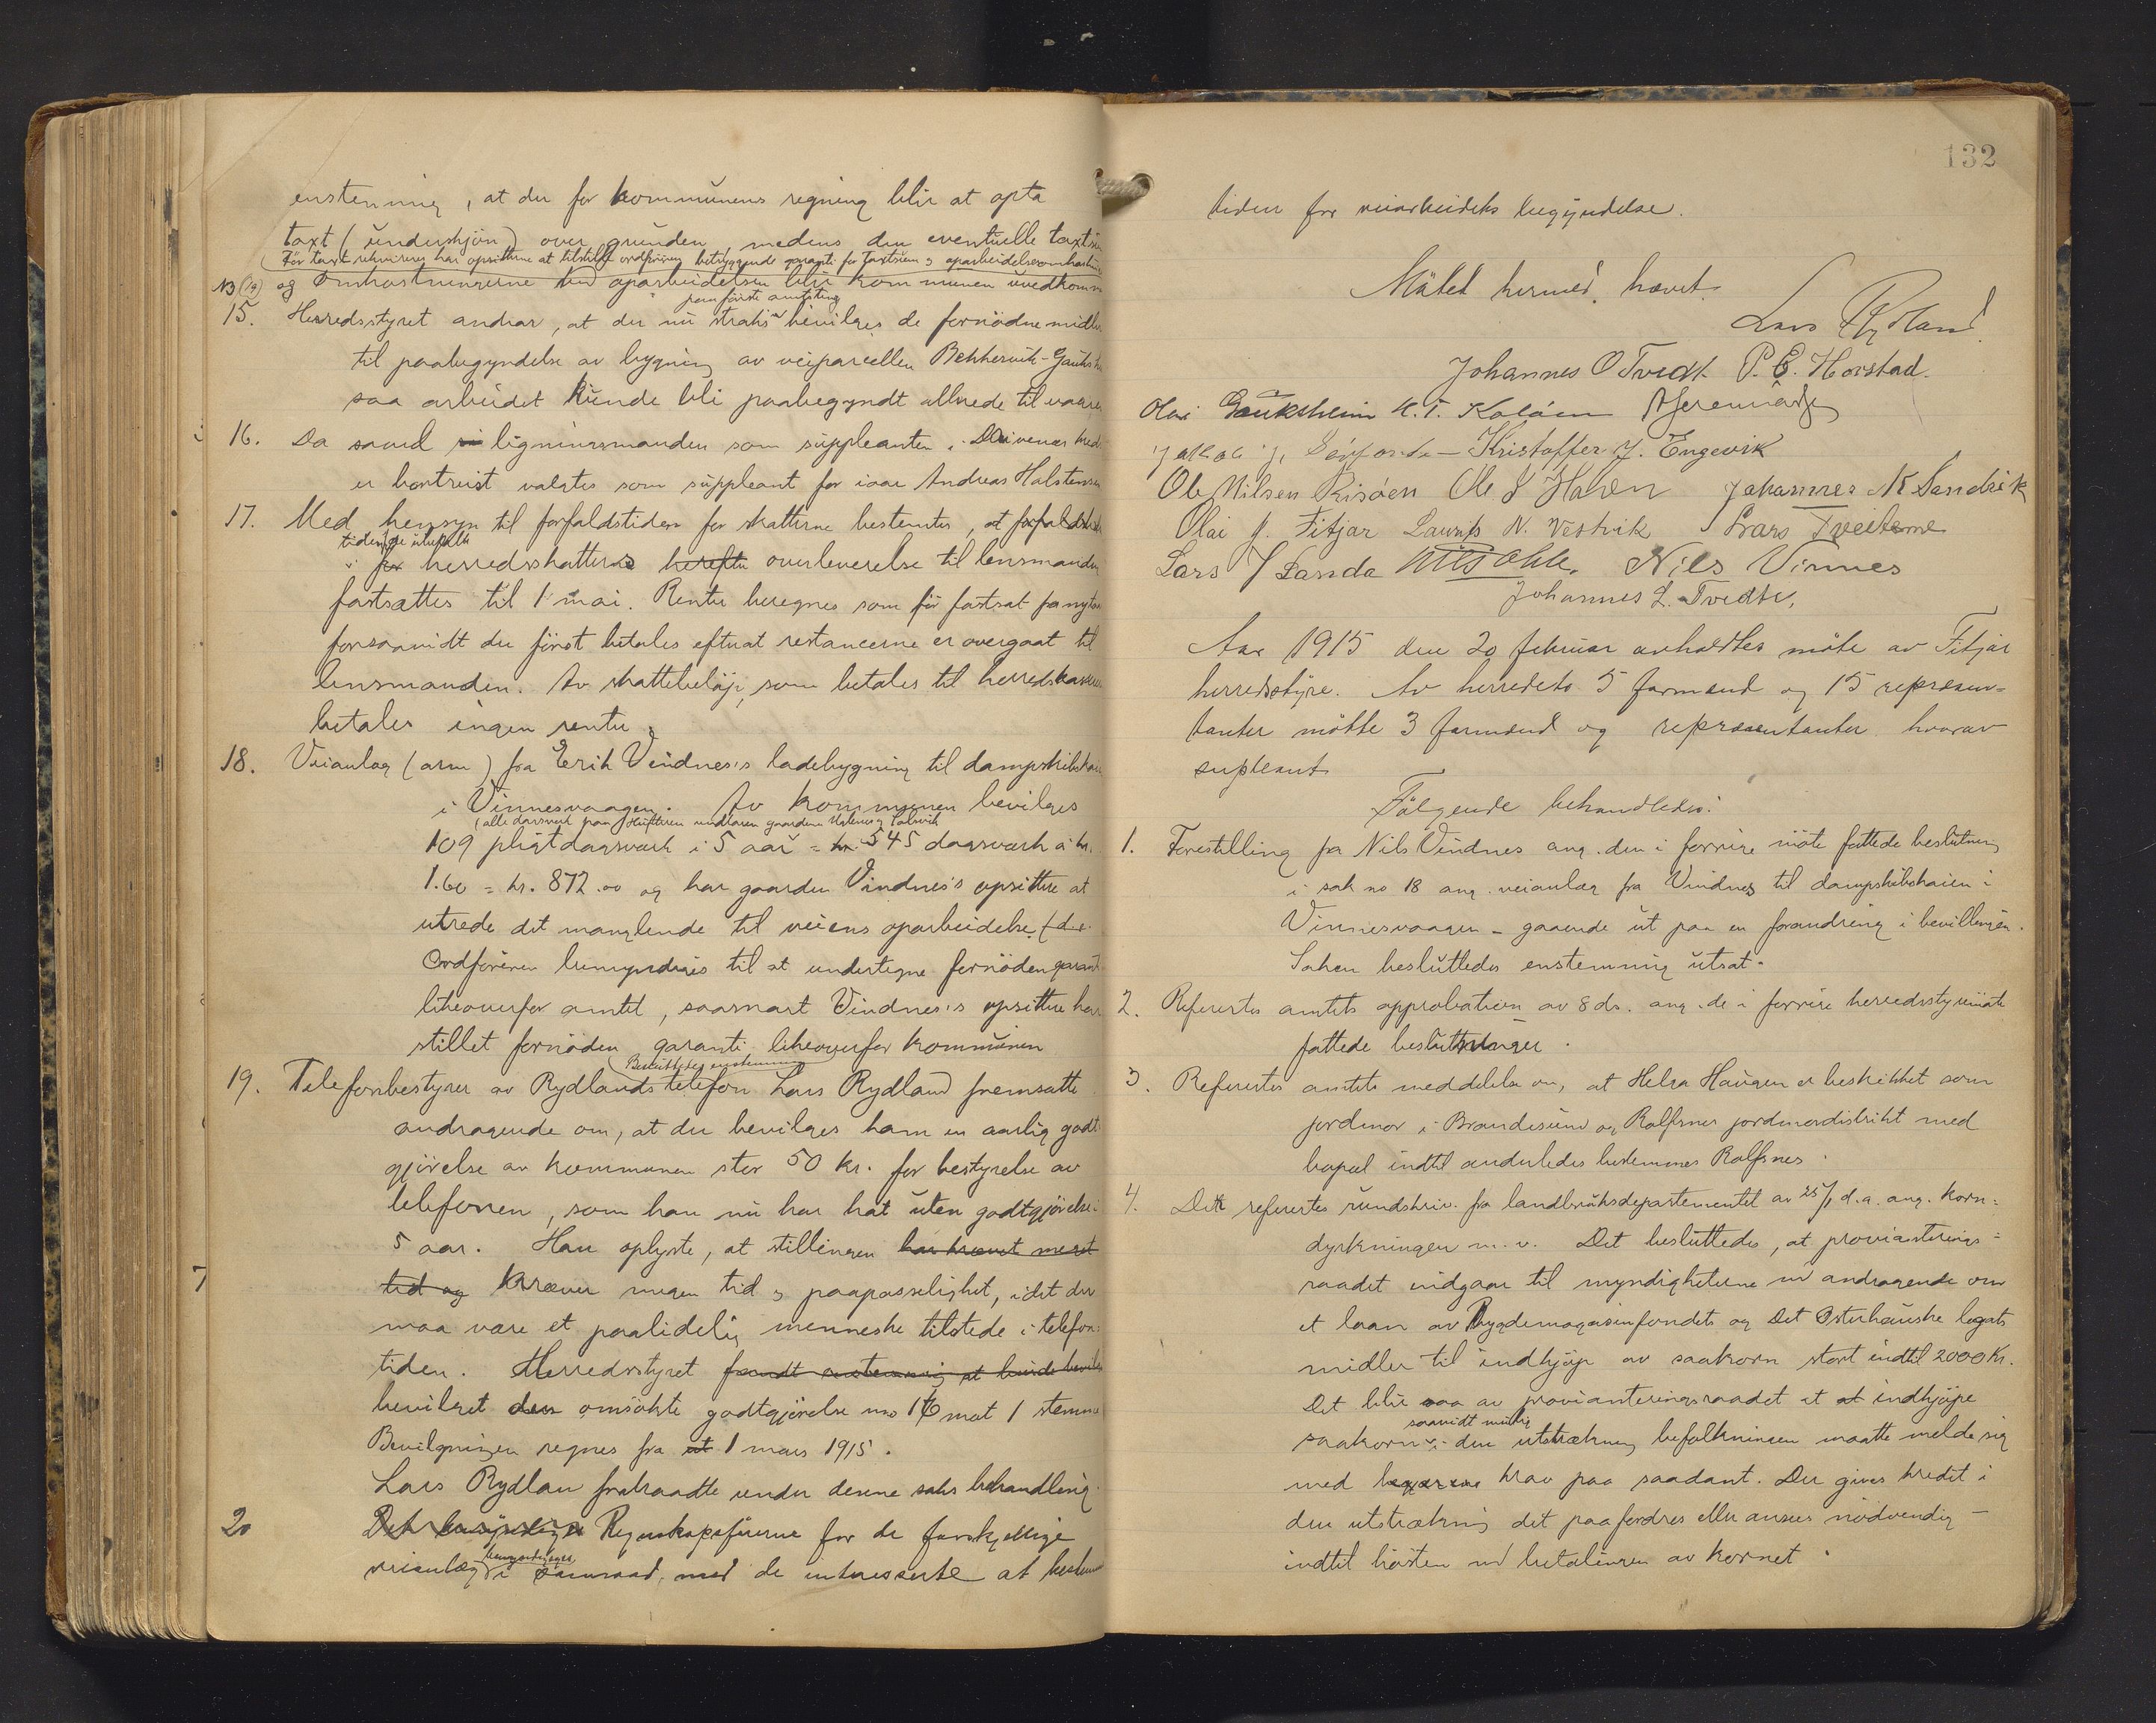 enstemmig, at der for kommunens regning blir at opta
taxt (underskjön) over grunden, medens den eventuelle taxtsum
För taxt rekvireres har opsitterne at tilstille ordföreren betryggende garanti for taxtsum og oparbeidelsesomkostninger
NB (14) og Omkostningerne ved oparbeidelsen blir kommunen uvedkomm
paa förste amtsting
15. Herredsstyret andrar, at der nu straks bevilges de fornödne midler
til paabegyndelse av bygning av veiparcellen Bekkervik-Gauks
saa arbeidet kunde bli paabegyndt allerede til vaaren
16. Da saavel ligningsmanden som suppleanten i Drivenes kreds
er bortreist valgtes som suppleant for iaar Andreas Halstensen
17. Med hensyn til forfaldstiden for skatterne bestemtes, at forfalds
tiden for utpælk
for herredsskatternes herefter overleverelse til lensmanden
fastsættes til 1 mai. Renter beregnes som för fastsat fra nytaar
forsaavidt der först betales efterat restancerne er overgaat til
lensmanden. Av skattebelöp, som betales til herredskassen
betales ingen renter.
18. Veianlæg (arm) fra Erik Vindnes's ladebygning til dampskibskaien
i Vinnesvaagen. Av kommunen bevilges
(alle dagsverk paa Huftaren undtagen gaardene
109 pligtdagsverk i 5 aar = kr. 545 dagsverk á kr.
1.60 = kr. 872.00 og har gaarden Vindnes's opsittere at
utrede det manglende til veiens oparbeidelse. (d.e.
Ordföreren bemyndiges til at undertegne fornöden garanti
likeoverfor amtet, saasnart Vindnes's opsittere har
stillet fornöden garanti likeoverfor kommunen
Besluttedes enstemmig
19. Telefonbestyrer av Rydlands telefon Lars Rydland fremsatte
andragende om, at der bevilges ham en aarlig godt
gjörelse av kommunen stor 50 kr. for bestyrelse av
telefonen, som han nu har hat uten godtgjörelse i
5 aar. Han oplyste, at stillingen har krævet meget
tid og kræver megen tid og paapasselighet, idet der
maa være et paalidelig menneske tilstede i telefon-
tiden. Herredsstyret fandt enstemmig at burde bevilge
bevilget den omsökte godtgjörelse mo 16 mot 1 stemme
Bevilgningen regnes fra at 1 mars 1915.
Lars Rydlan fratraadte under denne saks behandling.
20 Det bemyndiges Regnskapsförerne for de forskjellige
bemyndiges
veianlæg i samraad med de interesserte at bestemme
132
tiden for veiarbeidets begyndelse.
Mötet hermed hævet.
Lars Rydland
Johannes O Tvedt. P. E. Horstad.
Olai Gauksheim K. T. Koløen
Jakob J. Sörfonde – Kristoffer J. Engevik
Ole Nilsen Risöen Ole J Haven Johannes N Sandvik
Olai J. Fitjar Laurits N. Vestvik Lars Tveiterne
Lars J Landa Nils Nils Vinnes
Johannes L. Tvedte,
Aar 1915 den 20 februar avholdtes möte av Fitjar
herredsstyre. Av herredets 5 formænd og 15 repræsen-
tanter mötte 3 formænd og repræsentanter hvorav
supleant
Fölgende behandledes:
1. Forestilling fra Nils Vindnes ang. den i forrige möte fattede beslutning
i sak no 18 ang. veianlæg fra Vindnes til dampskibskaien i
Vinnesvaagen – gaaende ut paa en forandring i bevillingen.
Saken besluttedes enstemmig utsat.
2. Refertes amtets approbation av 8 ds. ang. de i forrige herredsstyremöte
fattede beslutninger.
3. Refertes amtets meddelelse om, at Helga Haugen er beskikket som
jordmor i Brandesund og Rolfsnes jordmordistrikt med
bopæl indtil anderledes bestemmes Rolfsnes.
4. Der refertes rundskriv fra landbruksdepartementet av 25/1 d.a. ang. korn-
dyrkningen m. v. Det besluttedes, at provianterings-
raadet indgaar til myndigheterne m andragende om
et laan av Bygdemagasinfondets og Det Osterhauske legats
midler til indkjöp av saakorn stort indtil 2000 kr.
Det blir saa av provianteringsraadet at at indkjöpe
saavidt mulig
saakorn i den utstrækning befolkningen maatte melde sig
med begjæring krav paa saadant. Der gives kredit i
den utstrækning det paafordres eller ansees nödvendig –
indtil hösten m betalingen av kornet.
7